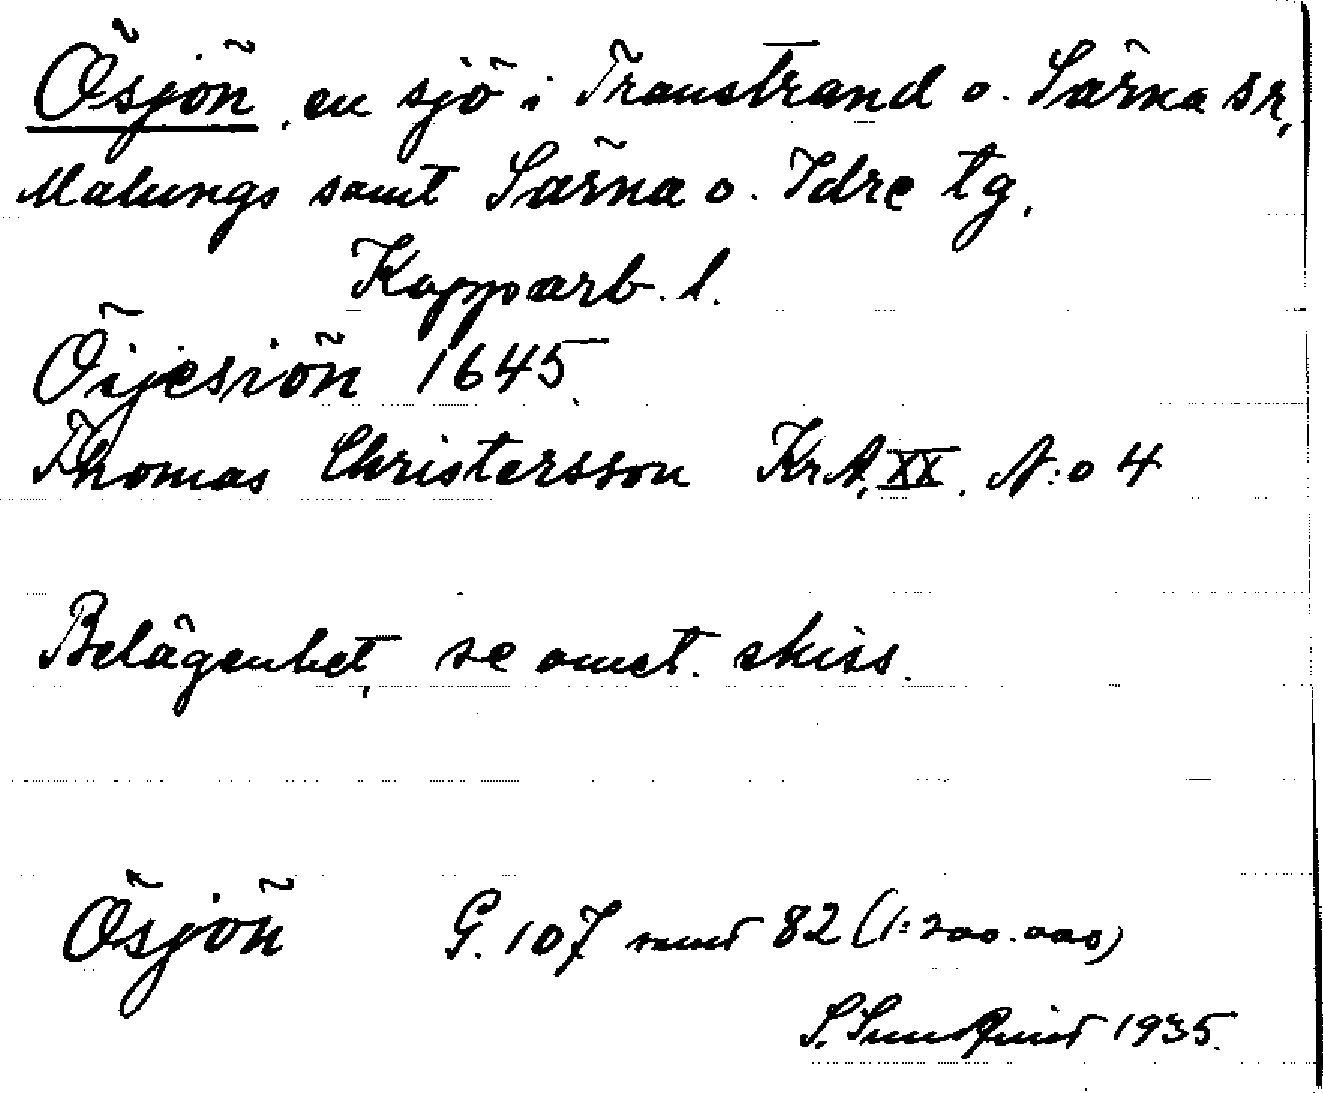 Ösjön, en sjö i Transtrand o. Särna sr,
Malungs samt Särna o. Idre tg.
Kopparb. l.
Öijesiön 1645.
Thomas Christersson KrA, XX. N:o 4
Belägenhet, se omst. skiss.
Ösjön G. 107 samt 82 (1:200.000)
S. Sundqvist 1935.